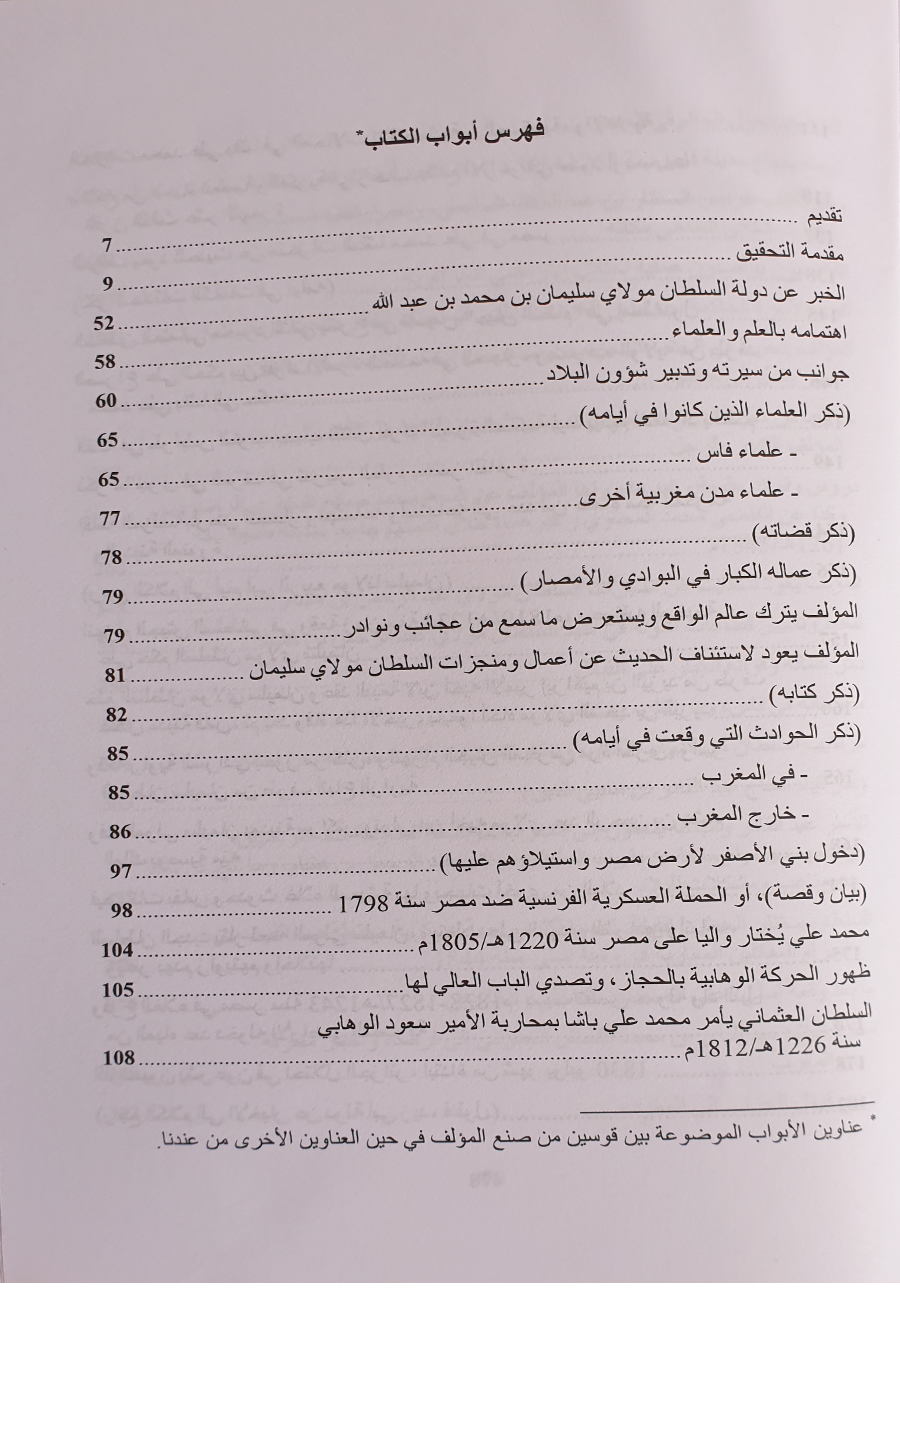 فهرس أبواب الكتاب*
تقديم ........ 7
مقدمة التحقيق ........ 9
الخبر عن دولة السلطان مولاي سليمان بن محمد بن عبد الله ........ 52
اهتمامه بالعلم والعلماء ........ 58
جوانب من سيرته وتدبير شؤون البلاد ........ 60
(ذكر العلماء الذين كانوا في أيامه) ........ 65
- علماء فاس ........ 65
- علماء مدن مغربية أخرى ........ 77
(ذكر قضاته) ........ 78
(ذكر عماله الكبار في البوادي والأمصار) ........ 79
المؤلف يترك عالم الواقع ويستعرض ما سمع من عجائب ونوادر ........ 79
المؤلف يعود لاستئناف الحديث عن أعمال ومنجزات السلطان مولاي سليمان ........ 81
(ذكر كتابه) ........ 82
(ذكر الحوادث التي وقعت في أيامه) ........ 85
- في المغرب ........ 85
- خارج المغرب ........ 86
(دخول بني الأصفر لأرض مصر واستيلاؤهم عليها) ........ 97
(بيان وقصة)، أو الحملة العسكرية الفرنسية ضد مصر سنة 1798 ........ 98
محمد علي يُختار واليا على مصر سنة 1220هـ/1805م ........ 104
ظهور الحركة الوهابية بالحجاز، وتصدي الباب العالي لها ........ 105
السلطان العثماني يأمر محمد علي باشا بمحاربة الأمير سعود الوهابي
سنة 1226هـ/1812م ........ 108
* عناوين الأبواب الموضوعة بين قوسين من صنع المؤلف في حين العناوين الأخرى من عندنا.